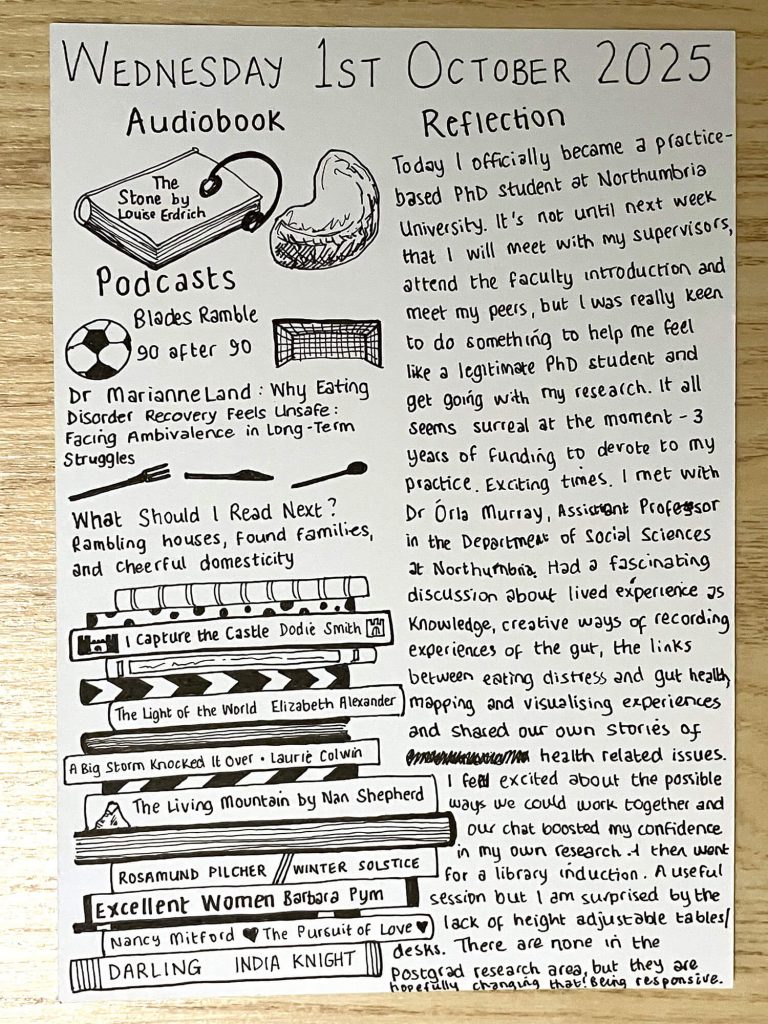 WEDNESDAY 1ST OCTOBER 2025
Audiobook
The
Stone by
Louise Erdrich
Podcasts
Blades Ramble
90 after 90
Dr Marianne Land : Why Eating
Disorder Recovery Feels Unsafe :
Facing Ambivalence in Long-Term
Struggles
What Should I Read Next?
Rambling houses, found families,
and cheerful domesticity
I capture the Castle Dodie Smith
The Light of the World Elizabeth Alexander
A Big Storm Knocked It Over • Laurie Colwin
The Living Mountain by Nan Shepherd
ROSAMUND PILCHER // WINTER SOLSTICE
Excellent Women Barbara Pym
Nancy Mitford ♥ The Pursuit of Love ♥
DARLING INDIA KNIGHT
Reflection
Today I officially became a practice-
based PhD student at Northumbria
University. It's not until next week
that I will meet with my supervisors,
attend the faculty introduction and
meet my peers, but I was really keen
to do something to help me feel
like a legitimate PhD student and
get going with my research. It all
seems surreal at the moment - 3
years of funding to devote to my
practice. Exciting times. I met with
Dr Órla Murray, Assistant Professor
in the Department of Social Sciences
at Northumbria. Had a fascinating
discussion about lived experience as
Knowledge, creative ways of recording
experiences of the gut, the links
between eating distress and gut health,
mapping and visualising experiences
and shared our own stories of
health related issues.
I feel excited about the possible
ways we could work together and
our chat boosted my confidence
in my own research. I then went
for a library induction. A useful
session but I am surprised by the
lack of height adjustable tables/
desks. There are none in the
postgrad research area, but they are
hopefully changing that! Being responsive.